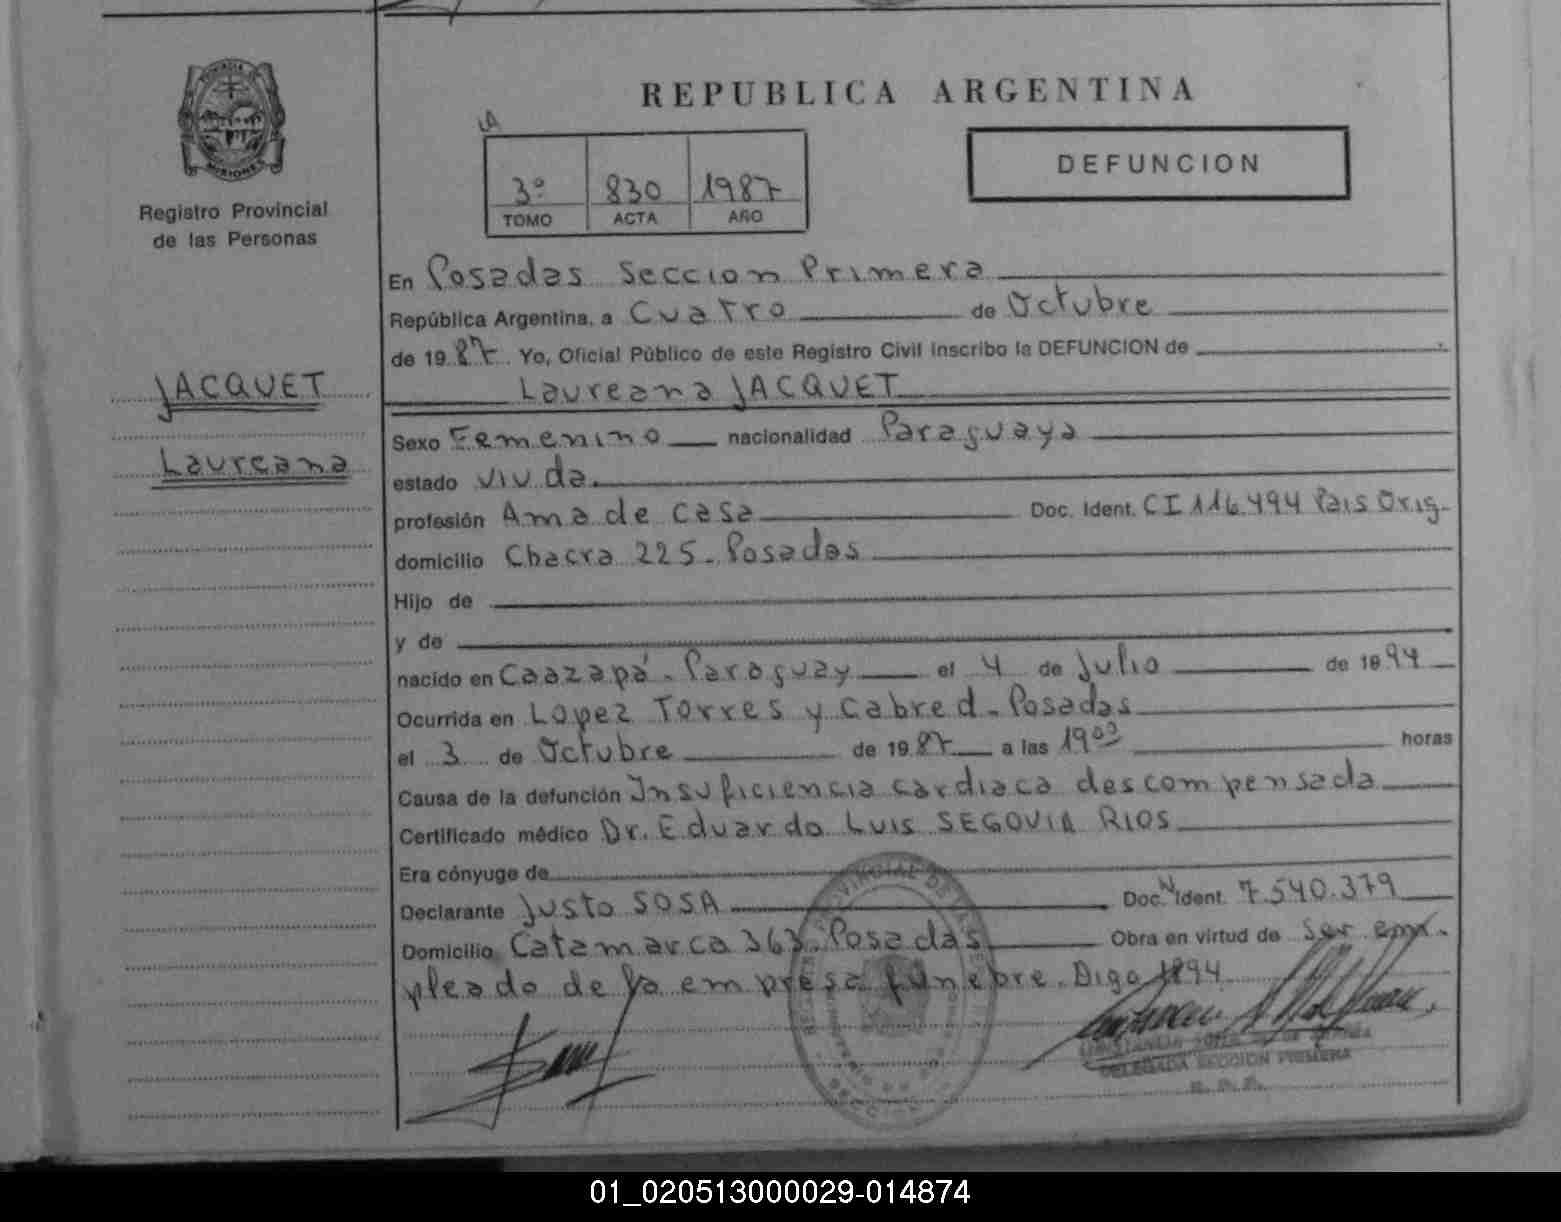 REPUBLICA ARGENTINA
PROVINCIA DE
MISIONES
Registro Provincial
de las Personas
LA
3º 830 1987
TOMO ACTA AÑO
DEFUNCION
En Posadas Seccion Primera
República Argentina, a Cuatro de Octubre
de 19 87 Yo, Oficial Público de este Registro Civil inscribo la DEFUNCION de
JACQUET
Laureana
Laureana JACQUET
Sexo Femenino nacionalidad Paraguaya
estado viuda.
profesión Ama de casa Doc. Ident. CI 116.494 Pais Orig.
domicilio Chacra 225. Posadas
Hijo de
y de
nacido en Caazapá. Paraguay el 4 de Julio de 1894
Ocurrida en Lopez Torres y Cabred. Posadas
el 3 de Octubre de 1987 a las 19 03 horas
Causa de la defunción Insuficiencia cardiaca descompensada
Certificado médico Dr. Eduardo Luis SEGOVIA RIOS
Era cónyuge de
Declarante Justo SOSA Doc. N Ident. 7.540.379
Domicilio Catamarca 363. Posadas Obra en virtud de ser em-
pleado de la empresa fúnebre. Digo 1894
PROVINCIAL DE LAS
DELEGADA SECCION PRIMERA
01_020513000029-014874